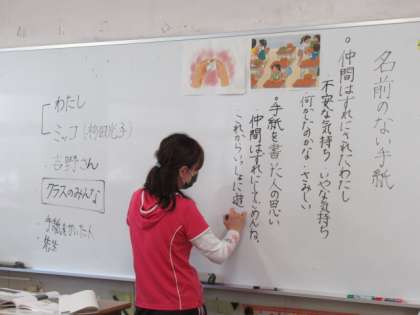 名前のない手紙
。仲間はずれにされたわたし
不安な気持ち いやな気持ち
のかな・さみしい
。手紙を書いた人の思い
・仲間はずれにしてごめんね。
これからいっしょに遊
わたし
ミッコ
吉野さん
クラスのみんな
・手紙を書いた人
・先生